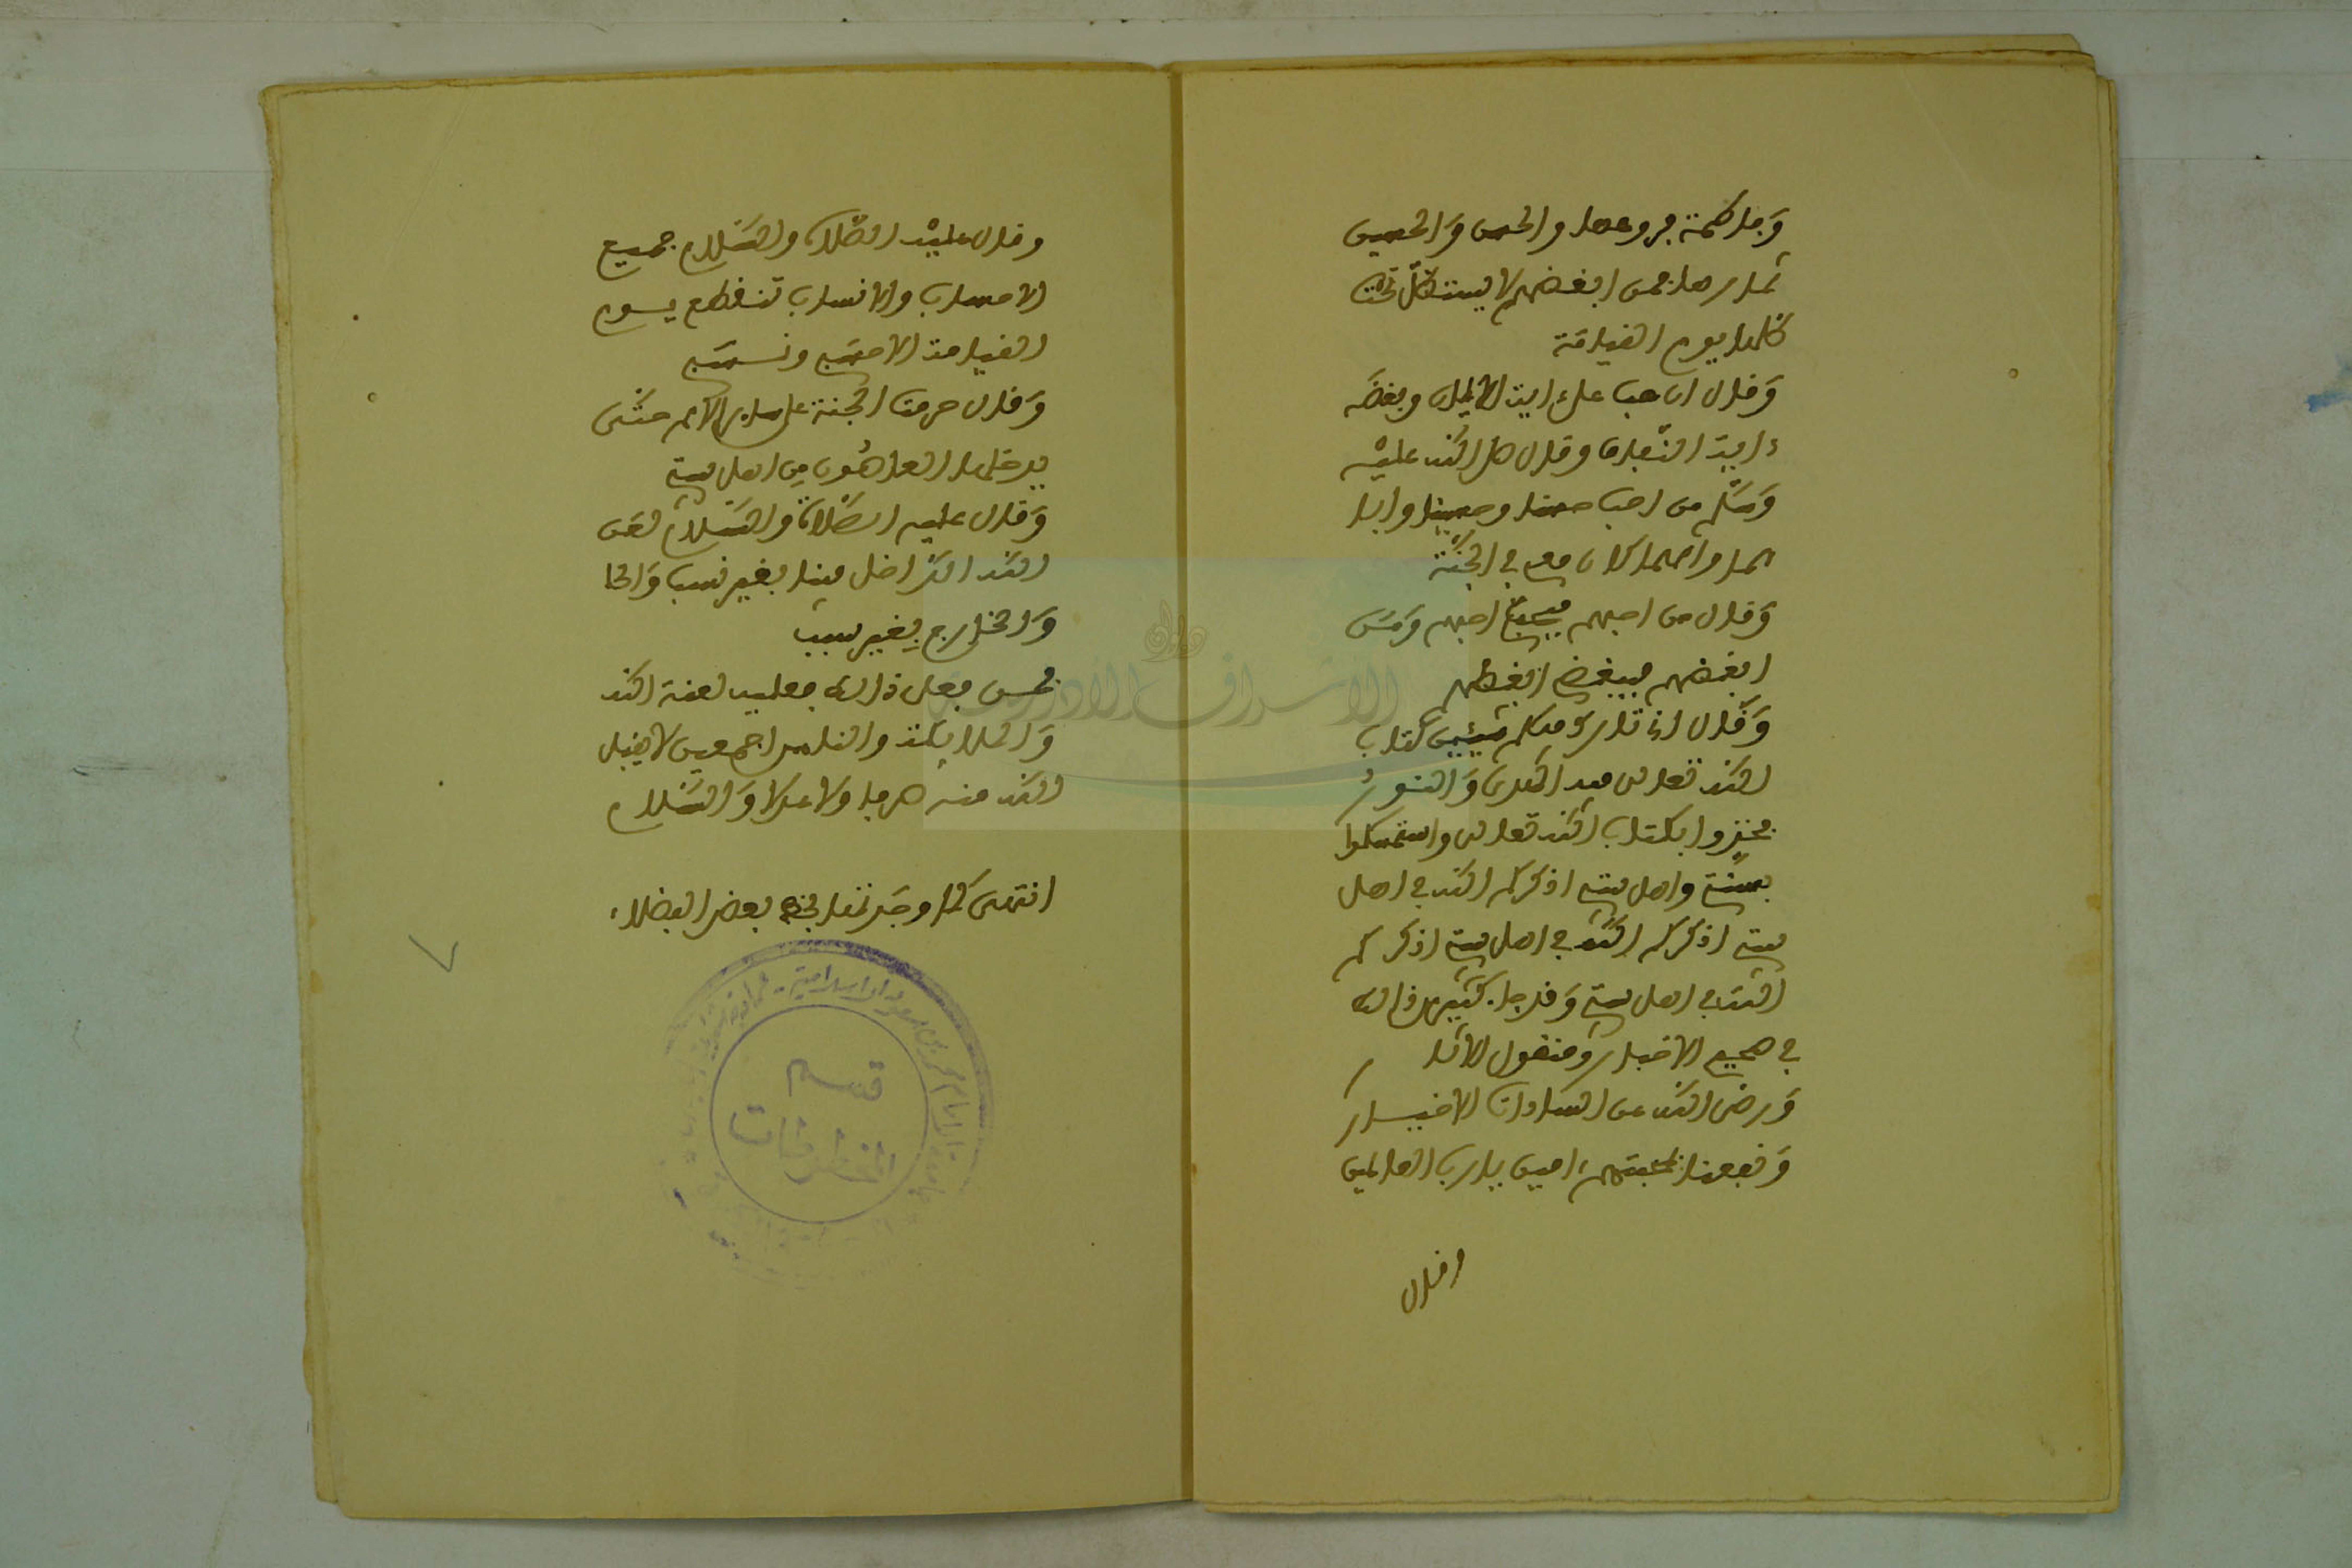 وَفاطمة فروعها والحسن وَالحسين
ثمارها فمن ابغضهم لا يستظلّ تحت
ظلها يوم القيامَة
وَقال ان حب علي اية الايمان وبغضَه
ءاية النّفاق وقال صل الله عليْه
وَسَلّم من احب حسنا وحسينا واباهما
وامهما كان معي في الجنّة
وَقال من احبهم فبحبي احبهم وَمَن
ابغضهم فببغضي ابغضهم
وَقال اني تارك فيكم شيئين كتاب
الله تعالى فيه الهدى وَالنورُ
فخذوا بكتاب الله تعالى واستمسكوا
بسنتي واهل بيتي اذكركم الله في اهل
بيتي اذكركم الله في اهل بيتي اذكركم
الله في اهل بيتي وَقد جاء كثير من ذالك
في صحيح الاخبار ومنقول الاثار
وَرضى الله عن السادات الاخيار
وَنفعنا بمحبتهم ءامين يارب العالمين
وقال
وقال عليْه الصّلاة والسَّلام جميع
الاحساب والانساب تنقطع يوم
القيامة الا حسَبي ونسَبي
وَقال حرمت الجنة على سائر الامم حتَّى
يدخلها العاهُون من اهل بيتي
وَقال عليه الصَّلاة والسَّلام لعَن
الله الداخل فينا بغير نسب وَالخا
وَالخارج بِغير سبب
فمن فعل ذالك فعليه لعنة الله
وَالملائكة والناس اجمعين لا يقبل
الله منه صرفا ولا عدلا وَالسَّلام
انتهى كما وجَد تحقا بخط بعض الفضلاء
قسم
المخطوطات
ديوان
الأشراف الأدارسة